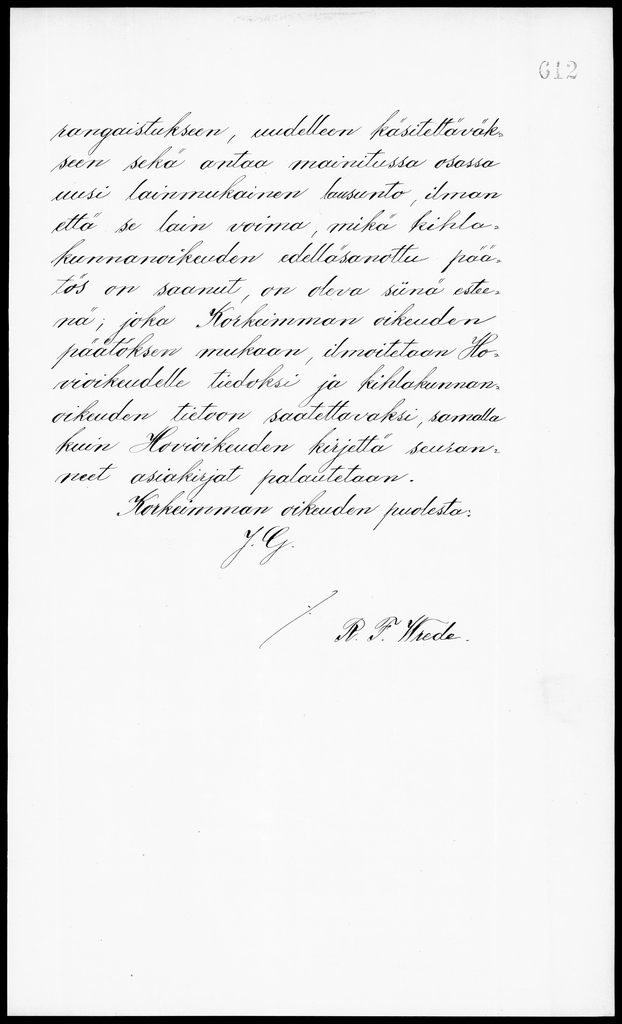 612
rangaistukseen, uudelleen käsiteltäväk=
seen sekä antaa mainitussa osassa
uusi lainmukainen lausunto, ilman
että se lain voima, mikä kihla=
kunnanoikeuden edelläsanottu pää=
tös on saanut, on oleva siinä estee=
nä; joka Korkeimman oikeuden
päätöksen mukaan, ilmoitetaan Ho=
vioikeudelle tiedoksi ja kihlakunnan=
oikeuden tietoon saatettavaksi, samalla
kuin Hovioikeuden kirjettä seuran=
neet asiakirjat palautetaan.
Korkeimman oikeuden puolesta:
J. G.
R. F. Wrede.